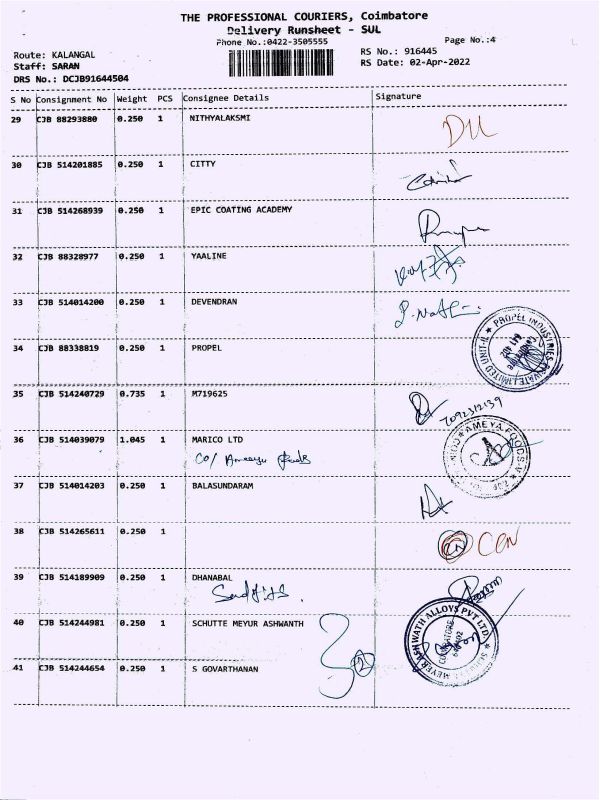 THE PROFESSIONAL COURIERS, Coimbatore
Delivery Runsheet - SUL
Phone No.:0422-3505555
Page No.:4
Route: KALANGAL
RS No.: 916445
Staff: SARAN
RS Date: 02-Apr-2022
DRS No.: DCJB91644504
S No Consignment No Weight PCS Consignee Details Signature
29 CJB 88293880 0.250 1 NITHYALAKSMI
30 CJB 514201885 0.250 1 CITTY
31 CJB 514268939 0.250 1 EPIC COATING ACADEMY
32 CJB 88328977 0.250 1 YAALINE
33 CJB 514014200 0.250 1 DEVENDRAN
34 CJB 88338819 0.250 1 PROPEL
PROPEL INDUSTRIES PRIVATE LIMITED UNIT-II
35 CJB 514240729 0.735 1 M719625
7092312139
36 CJB 514039079 1.045 1 MARICO LTD
AMEYA FOODS
37 CJB 514014203 0.250 1 BALASUNDARAM
38 CJB 514265611 0.250 1
39 CJB 514189909 0.250 1 DHANABAL
40 CJB 514244981 0.250 1 SCHUTTE MEYUR ASHWANTH
ALLOYS PVT LTD
COIMBATORE
41 CJB 514244654 0.250 1 S GOVARTHANAN